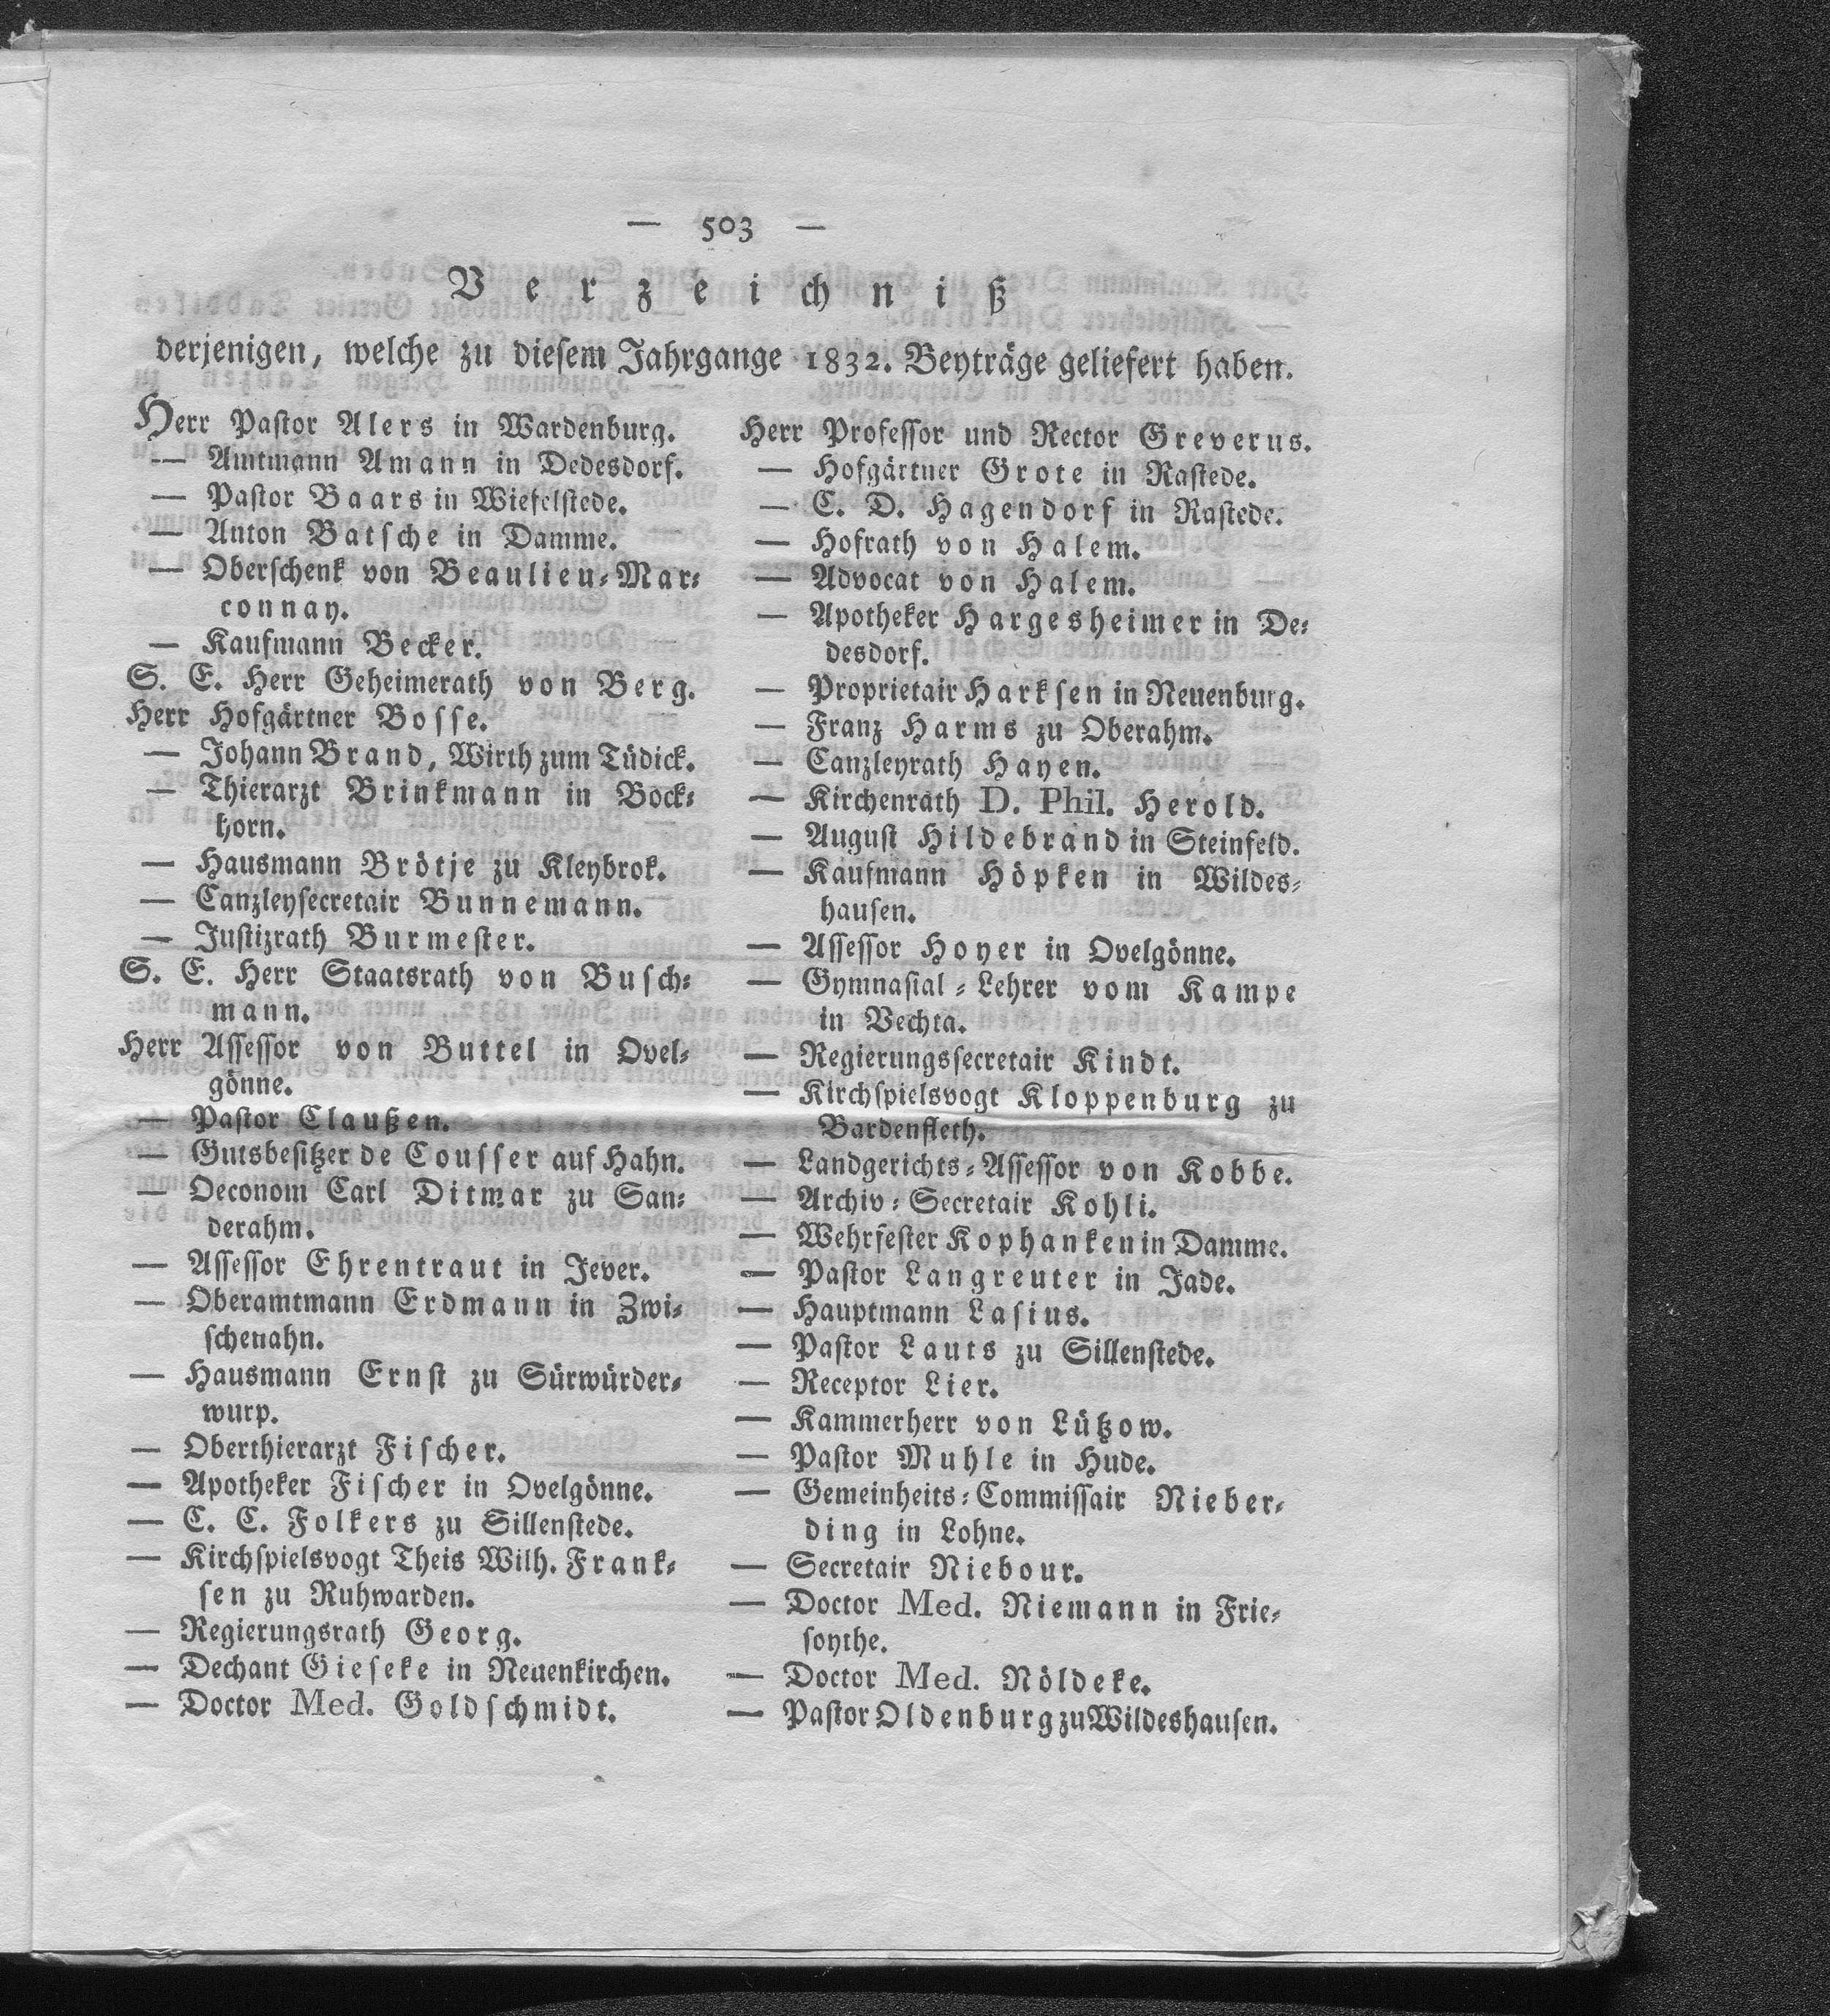 — 503 —
Verzeichniß
derjenigen, welche zu diesem Jahrgange 1832. Beyträge geliefert haben.
Herr Pastor Alers in Wardenburg.
— Amtmann Amann in Dedesdorf.
— Pastor Baars in Wiefelstede.
— Anton Batsche in Damme.
— Oberschenk von Beaulieu-Mar-
connay.
— Kaufmann Becker.
S. E. Herr Geheimerath von Berg.
Herr Hofgärtner Bosse.
— Johann Brand, Wirth zum Tüdick.
— Thierarzt Brinkmann in Bock-
horn.
— Hausmann Brötje zu Kleybrok.
— Canzleysecretair Bunnemann.
— Justizrath Burmester.
S. E. Herr Staatsrath von Busch-
mann.
Herr Assessor von Buttel in Ovel-
gönne.
— Pastor Claußen.
— Gutsbesitzer de Cousser auf Hahn.
— Oeconom Carl Ditmar zu San-
derahm.
— Assessor Ehrentraut in Jever.
— Oberamtmann Erdmann in Zwi-
schenahn.
— Hausmann Ernst zu Sürwürder-
wurp.
— Oberthierarzt Fischer.
— Apotheker Fischer in Ovelgönne.
— C. C. Folkers zu Sillenstede.
— Kirchspielsvogt Theis Wilh. Frank-
sen zu Ruhwarden.
— Regierungsrath Georg.
— Dechant Gieseke in Neuenkirchen.
— Doctor Med. Goldschmidt.
Herr Professor und Rector Greverus.
— Hofgärtner Grote in Rastede.
— C. D. Hagendorf in Rastede.
— Hofrath von Halem.
— Advocat von Halem.
— Apotheker Hargesheimer in De-
desdorf.
— Proprietair Harksen in Neuenburg.
— Franz Harms zu Oberahm.
— Canzleyrath Hayen.
— Kirchenrath D. Phil. Herold.
— August Hildebrand in Steinfeld.
— Kaufmann Höpken in Wildes-
hausen.
— Assessor Hoyer in Ovelgönne.
— Gymnasial-Lehrer vom Kampe
in Vechta.
— Regierungssecretair Kindt.
— Kirchspielsvogt Kloppenburg zu
Bardenfleth.
— Landgerichts-Assessor von Kobbe.
— Archiv-Secretair Kohli.
— Wehrfester Kophanken in Damme.
— Pastor Langreuter in Jade.
— Hauptmann Lasius.
— Pastor Lauts zu Sillenstede.
— Receptor Lier.
— Kammerherr von Lützow.
— Pastor Muhle in Hude.
— Gemeinheits-Commissair Nieber-
ding in Lohne.
— Secretair Niebour.
— Doctor Med. Niemann in Frie-
soythe.
— Doctor Med. Nöldeke.
— Pastor Oldenburg zu Wildeshausen.